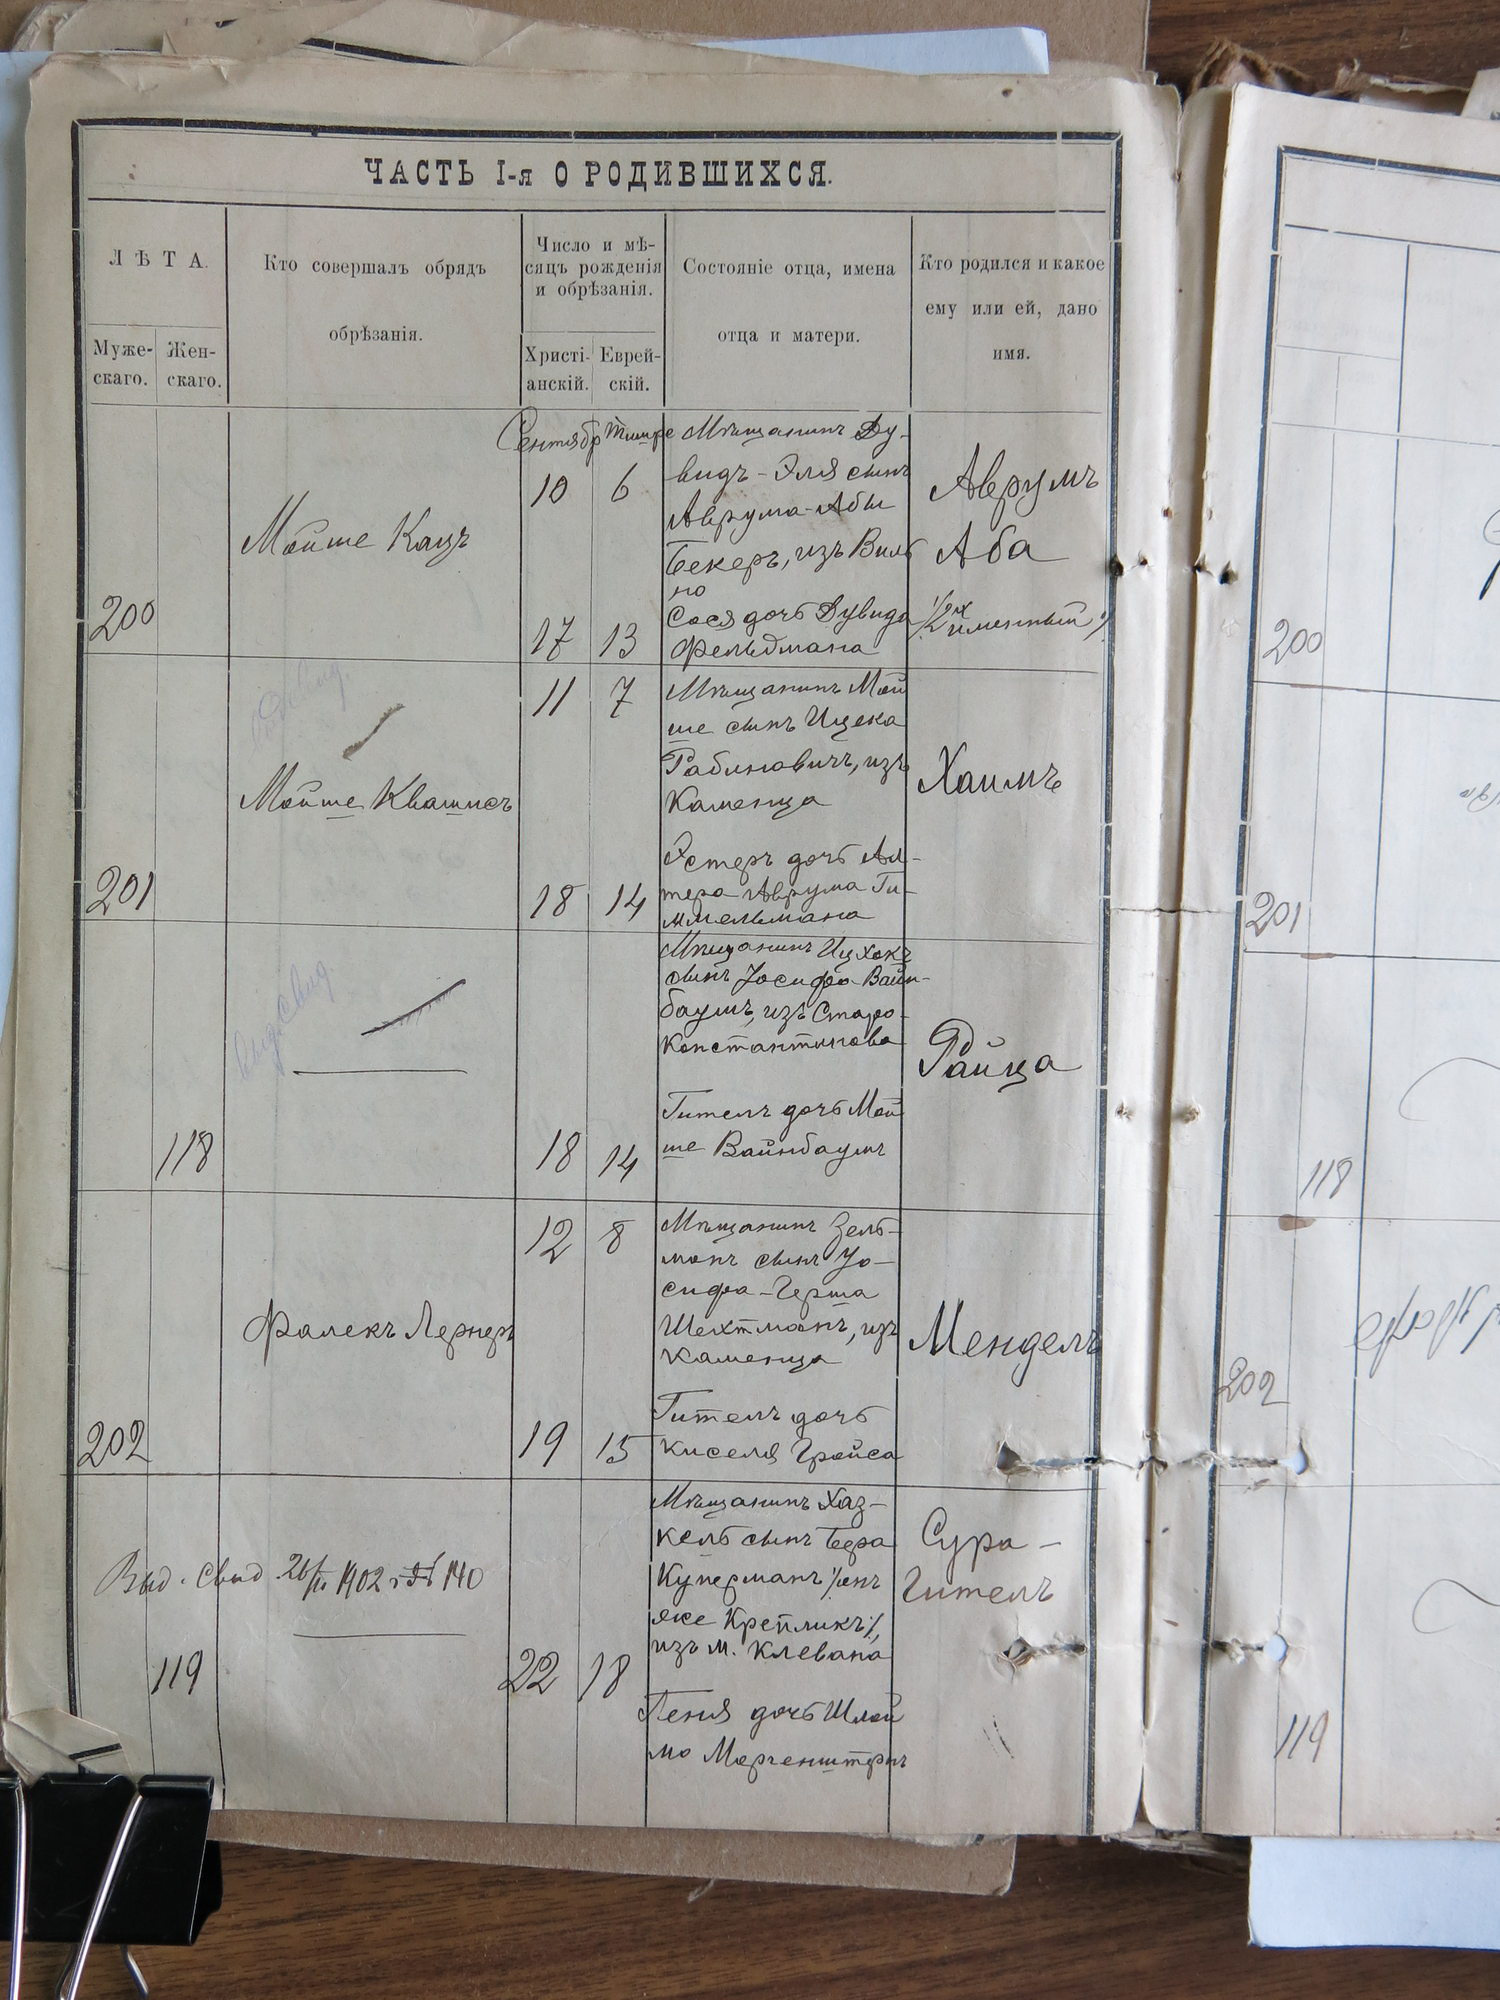 ЧАСТЬ I-я О РОДИВШИХСЯ.
ЛѢТА.
Муже-
скаго.
Жен-
скаго.
Кто совершалъ обрядъ
обрѣзанія.
Число и мѣ-
сяцъ рожденія
и обрѣзанія.
Христі-
анскій.
Еврей-
скій.
Состояніе отца, имена
отца и матери.
Кто родился и какое
ему или ей, дано
имя.
200
Мойше Кацъ
Сентябр Тишре
10 6
17 13
Мѣщанинъ Ду-
видъ-Эля сынъ
Аврума-Абы
Бекеръ, изъ Виль
но
Сося дочь Дувида
Фельдмана
Аврумъ
Аба
/2хъ именный/
201
Мойше Квашисъ
11 7
18 14
Мѣщанинъ Мой
ше сынъ Ицека
Рабиновичъ, изъ
Каменца
Эстеръ дочь Ал-
тера Аврума Ги-
ммельмана
Хаимъ
118
выд. свид
18 14
Мѣщанинъ Ицхокъ
сынъ Іосифа Вайн-
баумъ, изъ Старо-
константинова
Гителъ дочь Мой
ше Вайнбаумъ
Райца
202
Фалекъ Лернеръ
12 8
19 15
Мѣщанинъ Зель-
манъ сынъ Іо-
сифа-Герша
Шехтманъ, изъ
Каменца
Гителъ дочь
Киселя Гройса
Мендель
119
Выд. свид 26/II 1902 г № 140
22 18
Мѣщанинъ Хаз-
кель сынъ Бера
Куперманъ /онъ
же Крепликъ/,
изъ м. Клевана
Геня дочь Шлой
мо Моргенштернъ
Сура-
Гителъ
200
201
118
202
119